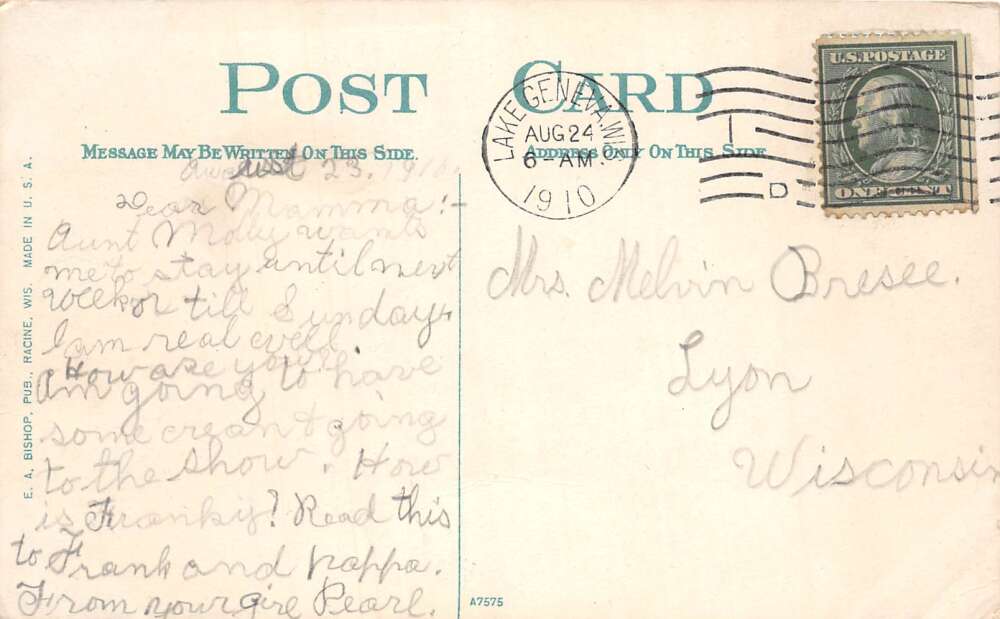 POST CARD
MESSAGE MAY BE WRITTEN ON THIS SIDE.
ADDRESS ONLY ON THIS SIDE
LAKE GENEVA, WIS.
AUG 24
6-AM
1910
D
U.S. POSTAGE
ONE CENT
August 23, 1910.
Dear Mamma:-
Aunt Mary wants
me to stay until next
week or till Sunday.
I am real well.
How are you?
Am going to have
some cream & going
to the show. How
is Franky? Read this
to Frank and pappa.
From your girl Pearl.
Mrs. Melvin Bresee.
Lyon
Wisconsin
E. A. BISHOP, PUB., RACINE, WIS. MADE IN U.S.A.
A7575